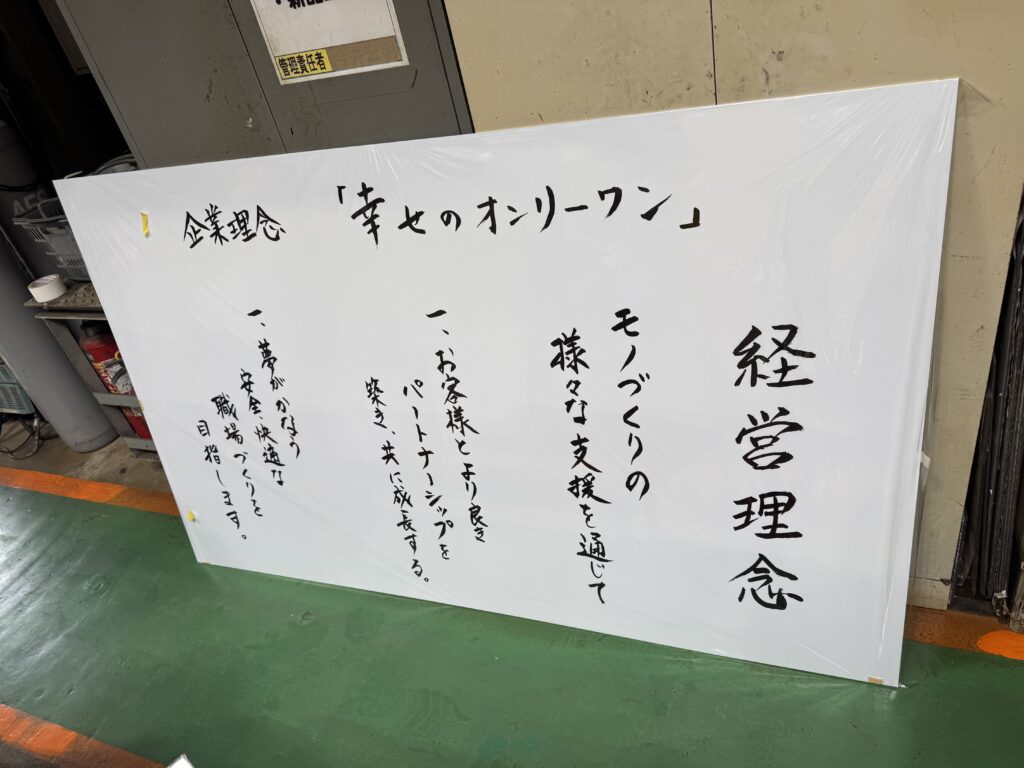 管理責任者
企業理念 「幸せのオンリーワン」
経営理念
モノづくりの
様々な支援を通じて
一、お客様とより良き
パートナーシップを
築き、共に成長する。
一、夢がかなう
安全、快適な
職場づくりを
目指します。